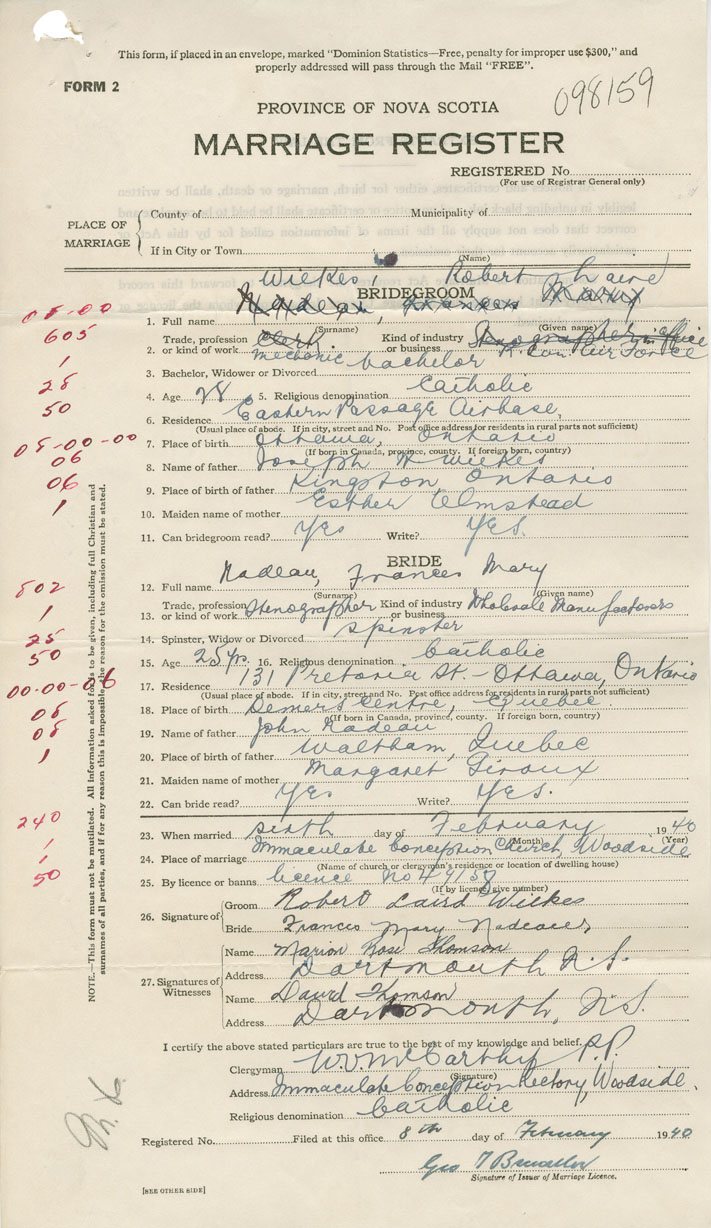 This form, if placed in an envelope, marked "Dominion Statistics—Free, penalty for improper use $300," and
properly addressed will pass through the Mail "FREE".
FORM 2
098159
PROVINCE OF NOVA SCOTIA
MARRIAGE REGISTER
REGISTERED No.
(For use of Registrar General only)
PLACE OF MARRIAGE
County of Municipality of
If in City or Town
(Name)
Wilkes, Robert Laird
BRIDEGROOM
1. Full name Nadeau, Frances Mary
(Surname) (Given name)
2. Trade, profession or kind of work Clerk Mechanic Kind of industry or business Stenographer in office R. Can Air Force
3. Bachelor, Widower or Divorced bachelor
4. Age 28 5. Religious denomination Catholic
6. Residence Eastern Passage Airbase,
(Usual place of abode. If in city, street and No. Post office address for residents in rural parts not sufficient)
7. Place of birth Ottawa, Ontario
(If born in Canada, province, county. If foreign born, country)
8. Name of father Joseph H Wilkes
9. Place of birth of father Kingston, Ontario
10. Maiden name of mother Esther Olmstead
11. Can bridegroom read? Yes Write? Yes.
BRIDE
12. Full name Nadeau, Frances Mary
(Surname) (Given name)
13. Trade, profession or kind of work Stenographer Kind of industry or business Wholesale Manufactorers
14. Spinster, Widow or Divorced Spinster
15. Age 25 yrs. 16. Religious denomination Catholic
17. Residence 131 Pretoria St. - Ottawa, Ontario
(Usual place of abode. If in city, street and No. Post office address for residents in rural parts not sufficient)
18. Place of birth Demers Centre, Quebec.
(If born in Canada, province, county. If foreign born, country)
19. Name of father John Nadeau
20. Place of birth of father Waltham, Quebec
21. Maiden name of mother Margaret Giroux
22. Can bride read? Yes Write? Yes.
23. When married sixth day of February 1940
(Month) (Year)
24. Place of marriage Immaculate Conception Church, Woodside
(Name of church or clergyman's residence or location of dwelling house)
25. By licence or banns licence No 44138
(If by licence, give number)
26. Signature of
Groom Robert Laird Wilkes
Bride Frances Mary Nadeau
27. Signatures of Witnesses
Name Marion Rose Thomson
Address Dartmouth N.S.
Name David Thomson
Address Dartmouth, N.S.
I certify the above stated particulars are true to the best of my knowledge and belief.
Clergyman W.V. McCarthy P.P.
(Signature)
Address Immaculate Conception Rectory, Woodside.
Religious denomination Catholic
Registered No. Filed at this office 8th day of February 1940
Geo T
Signature of Issuer of Marriage Licence.
[SEE OTHER SIDE]
NOTE.—This form must not be mutilated. All information asked for is to be given, including full Christian and
surnames of all parties, and if for any reason this is impossible, the reason for the omission must be stated.
05-00
605
1
28
50
05-00-00
06
06
1
802
1
25
50
00-00-06
05
05
1
240
1
1
50